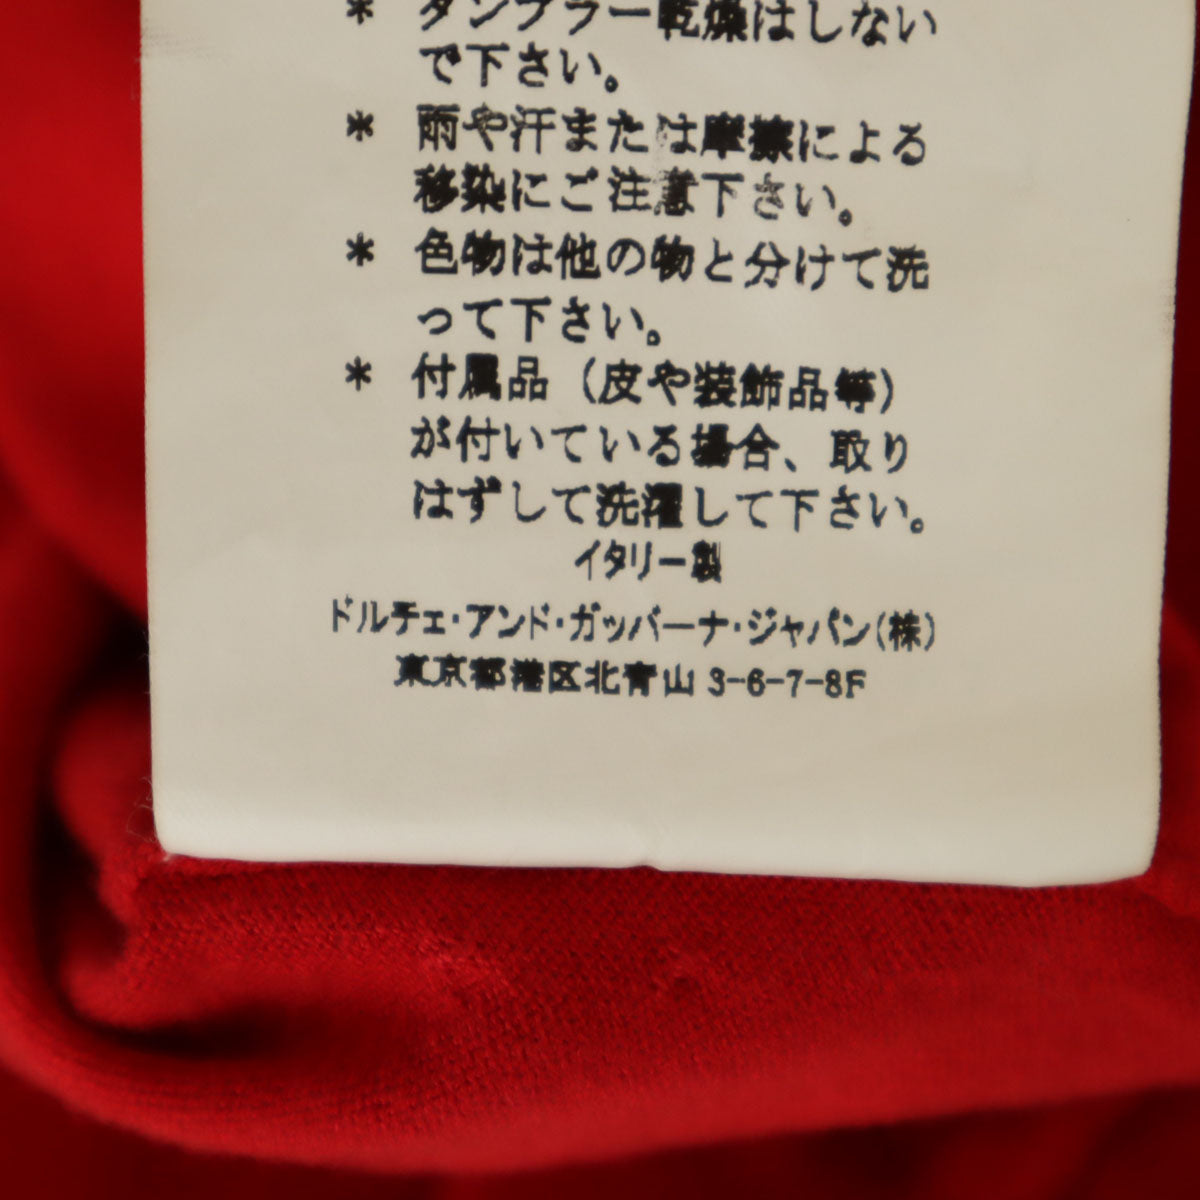 * タンブラー乾燥はしない
で下さい。
* 雨や汗または摩擦による
移染にご注意下さい。
* 色物は他の物と分けて洗
って下さい。
* 付属品（皮や装飾品等）
が付いている場合、取り
はずして洗濯して下さい。
イタリー製
ドルチェ・アンド・ガッバーナ・ジャパン(株)
東京都港区北青山 3-6-7-8F